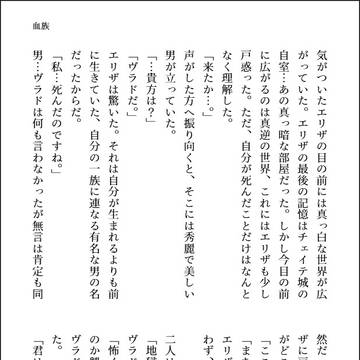 血族
気がついたエリザの目の前には真っ白な世界が広
がっていた。エリザの最後の記憶はチェイテ城の
自室…あの真っ暗な部屋だった。しかし今目の前
に広がるのは真逆の世界、これにはエリザも少し
戸惑った。ただ、自分が死んだことだけはなんと
なく理解した。
「来たか…。」
声がした方へ振り向くと、そこには秀麗で美しい
男が立っていた。
「…貴方は？」
「ヴラドだ。」
エリザは驚いた。それは自分が生まれるよりも前
に生きていた、自分の一族に連なる有名な男の名
だったからだ。
「私…死んだのですね。」
男…ヴラドは何も言わなかったが無言は肯定も同
然だ
ザに
がど
「ここ
「ま
エリザ
わず、
二人
「地獄
ヴラ
「怖
のか
ヴラ
た。
「君は